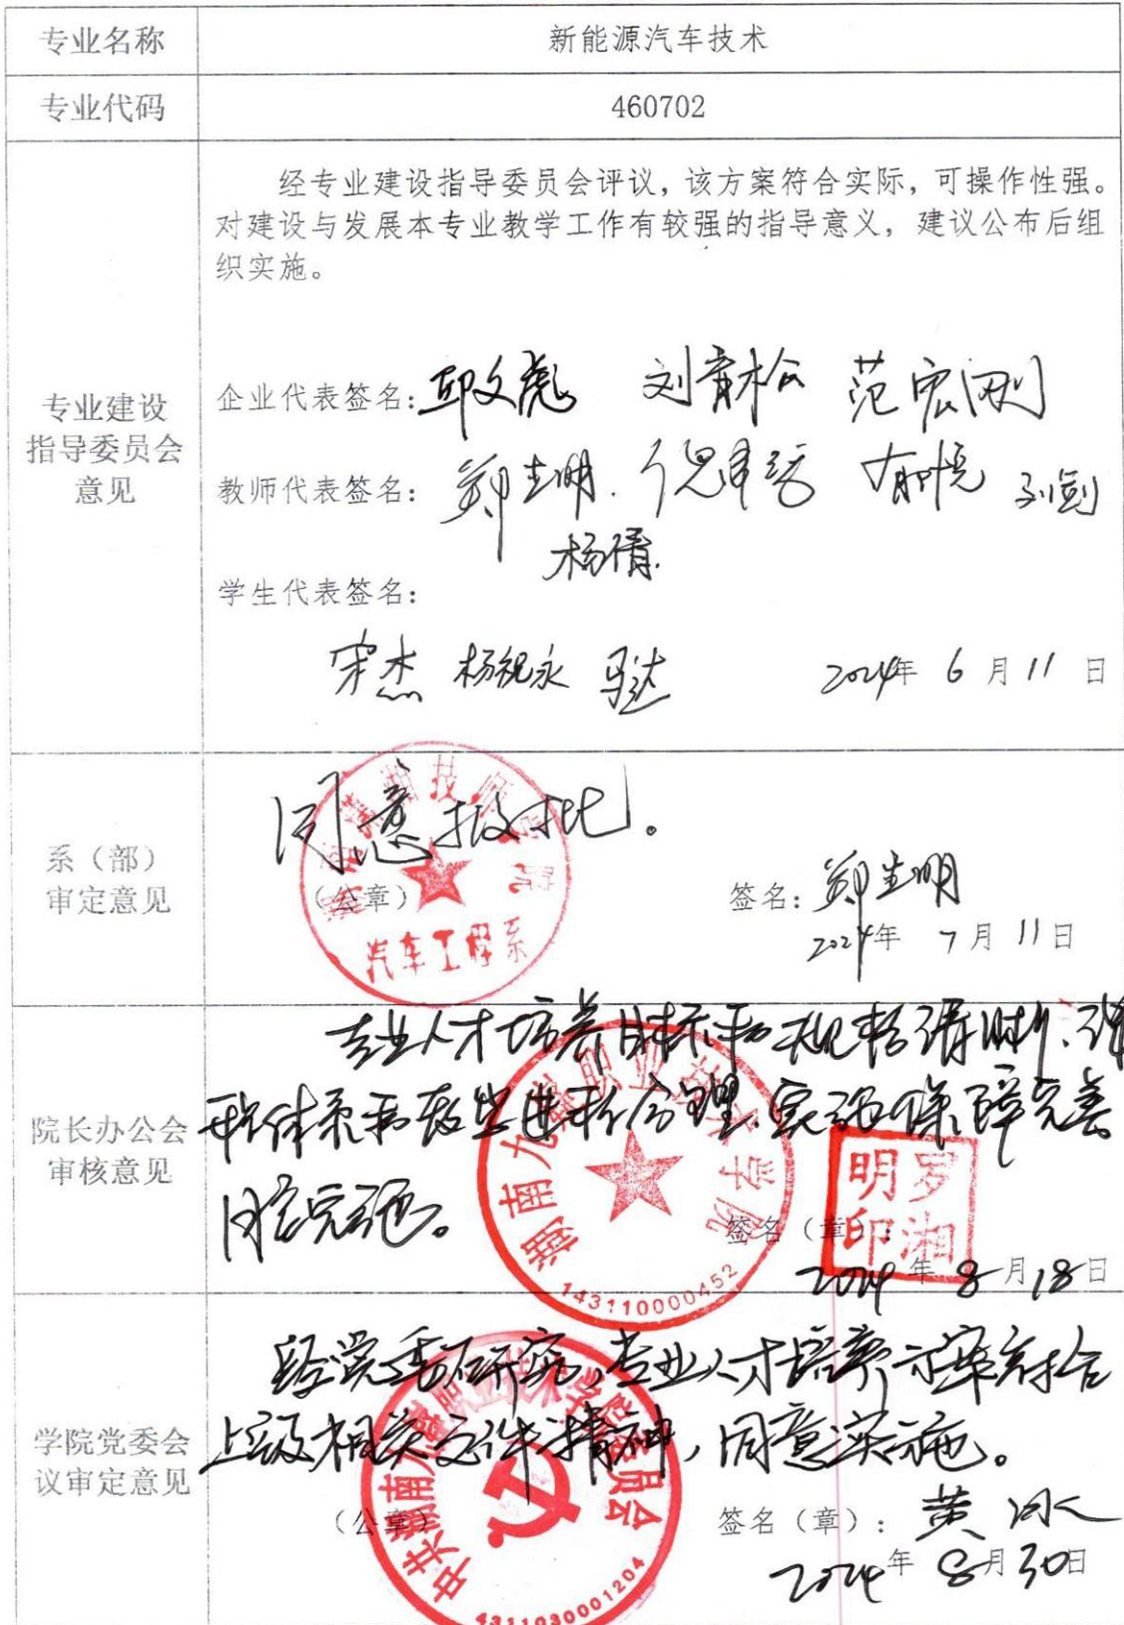 专业名称
新能源汽车技术
专业代码
460702
专业建设
指导委员会
意见
经专业建设指导委员会评议，该方案符合实际，可操作性强。
对建设与发展本专业教学工作有较强的指导意义，建议公布后组
织实施。
企业代表签名：邱文彪 刘青松 范宏刚
教师代表签名：郑志明 倪
杨倩
学生代表签名：
宋杰 杨祝永 马达 2024年 6 月 11 日
系（部）
审定意见
同意报批。
（公章）
汽车工程系
签名：郑志明
2024年 7月 11日
院长办公会
审核意见
专业人才培养目标和规格清晰、课
程体系和教学进程合理、实施保障完善
同意实施。
湖南九嶷职业技术学院
1431110000452
罗湘明印
签名（章）：
2024年 8月18日
学院党委会
议审定意见
经党委研究，专业人才培养方案符合
上级相关文件精神，同意实施。
中共湖南九嶷职业技术学院委员会
43110300001204
（公章）
签名（章）：黄冰
2024年 8月30日